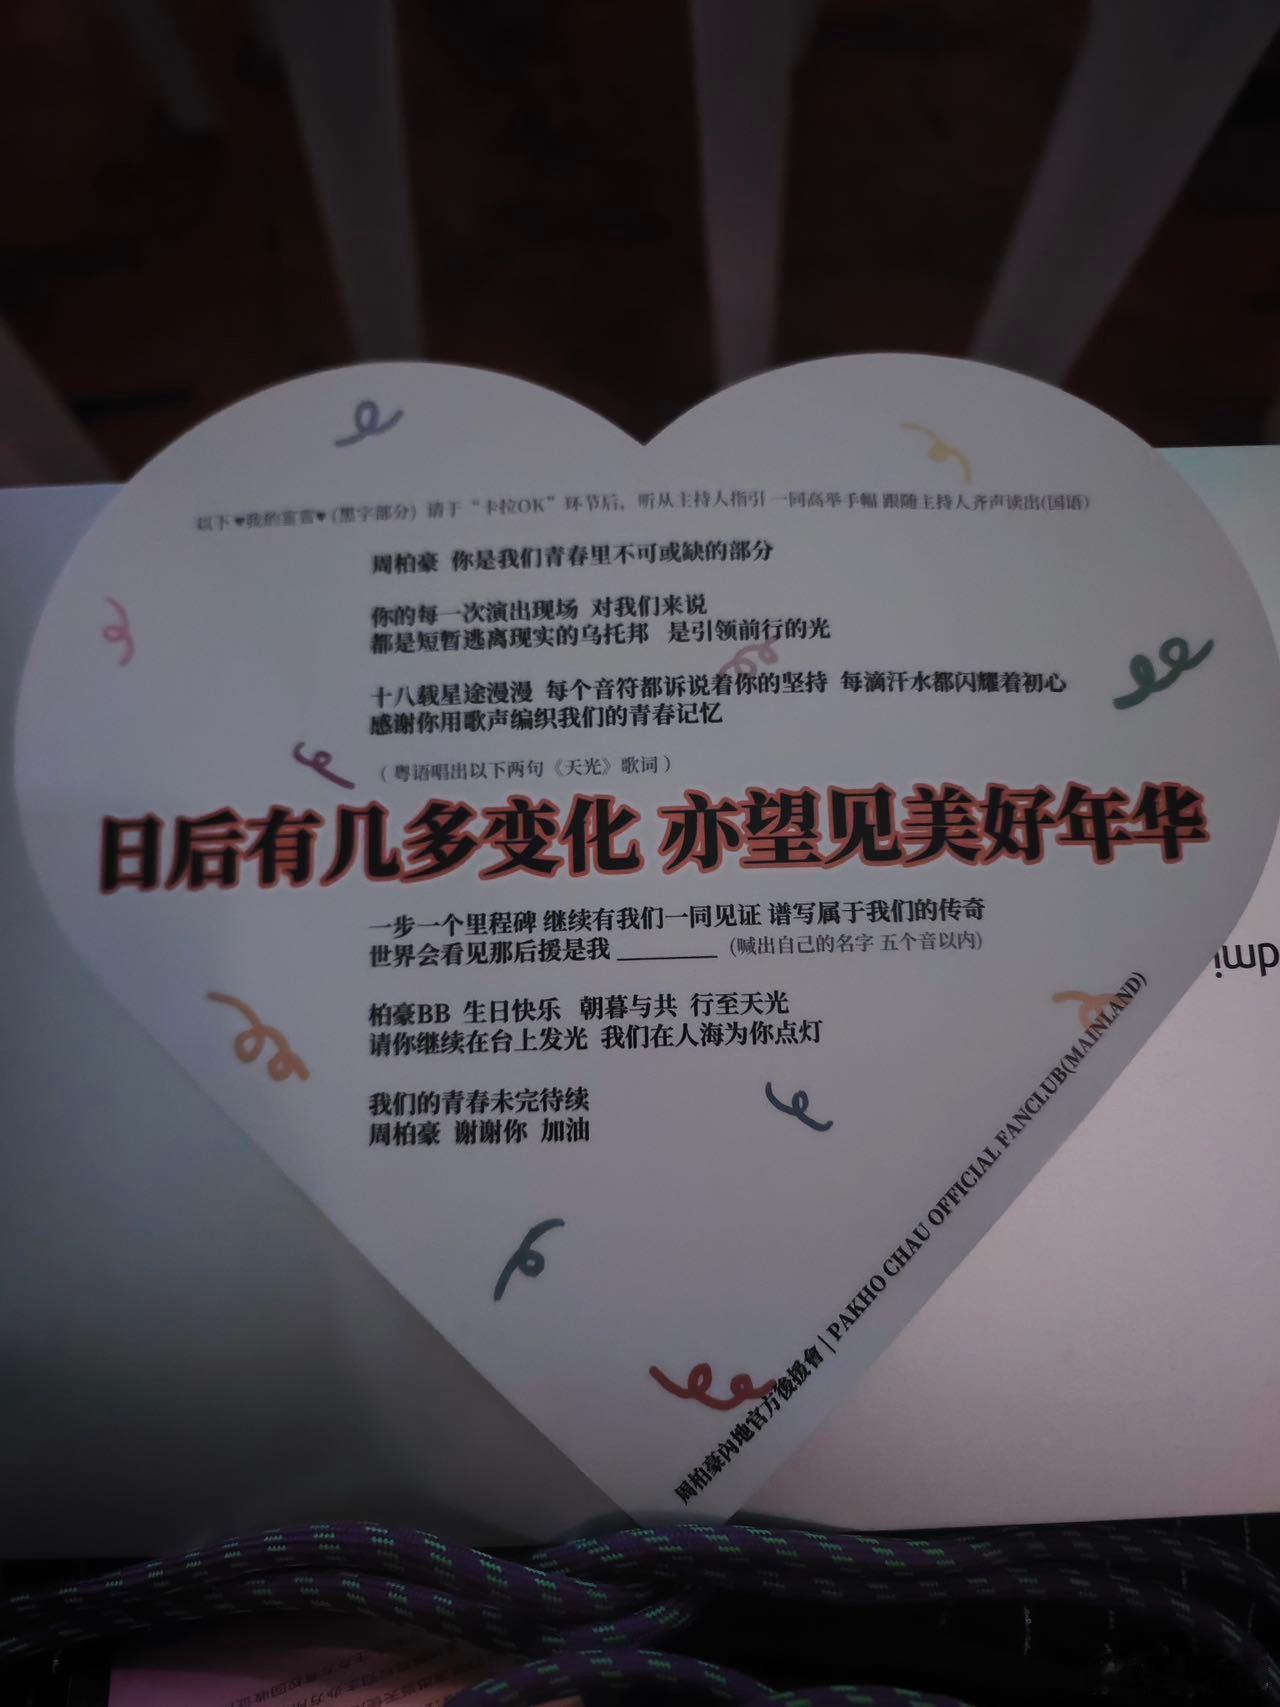 以下♥我的宣言♥(黑字部分) 请于“卡拉OK”环节后，听从主持人指引 一同高举手幅 跟随主持人齐声读出(国语)
周柏豪 你是我们青春里不可或缺的部分
你的每一次演出现场 对我们来说
都是短暂逃离现实的乌托邦 是引领前行的光
十八载星途漫漫 每个音符都诉说着你的坚持 每滴汗水都闪耀着初心
感谢你用歌声编织我们的青春记忆
（粤语唱出以下两句《天光》歌词）
日后有几多变化 亦望见美好年华
一步一个里程碑 继续有我们一同见证 谱写属于我们的传奇
世界会看见那后援是我 ________ (喊出自己的名字 五个音以内)
柏豪BB 生日快乐 朝暮与共 行至天光
请你继续在台上发光 我们在人海为你点灯
我们的青春未完待续
周柏豪 谢谢你 加油
周柏豪內地官方後援會 | PAKHO CHAU OFFICIAL FANCLUB(MAINLAND)